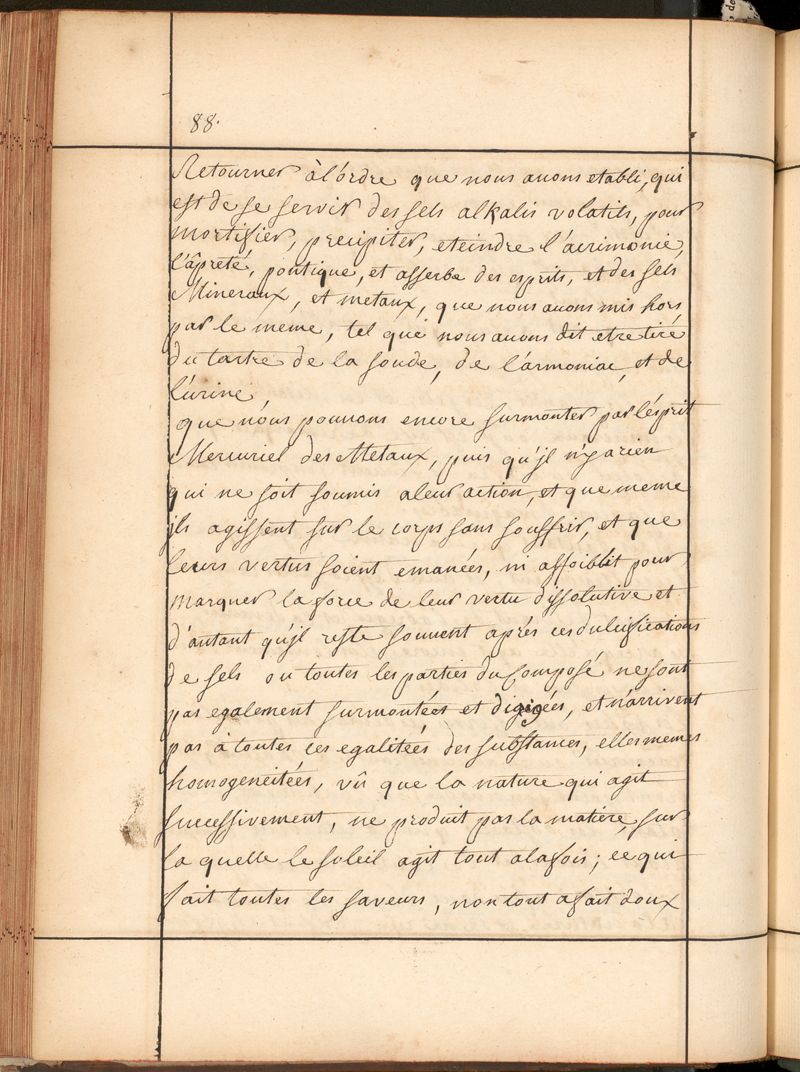 88.
Retourner à l'ordre que nous auons etabli, qui
est de se servir des sels alkalis volatils, pour
mortifier, precipiter, eteindre l'acrimonie,
l'âpreté, pontique, et asserbe des esprits, et des sels
Mineraux, et metaux, que nous auons mis hors
par le meme, tel que nous auons dit etre tiré
du tartre de la soude, de l'armoniac, et de
l'urine,
que nous pouuons encore surmonter par l'esprit
Mercuriel des Metaux, puis qu'jl n'y a rien
qui ne soit soumis a leur action, et que meme
jls agissent sur le corps sans souffrir, et que
leurs vertus soient emanées, ni affoiblit pour
marquer la force de leur vertu dissolutive et
d'autant qu'jl reste souuent aprés ces dulcifications
de sels ou toutes les parties du Composé ne sont
pas egalement surmontées et digigées, et n'arrivent
pas à toutes ces egalitées des substances, elles memes
homogeneitées, vû que la nature qui agit
successivement, ne produit par la matiere, sur
la quelle le soleil agit tout a la fois; ce qui
fait toutes les saveurs, non tout a fait doux